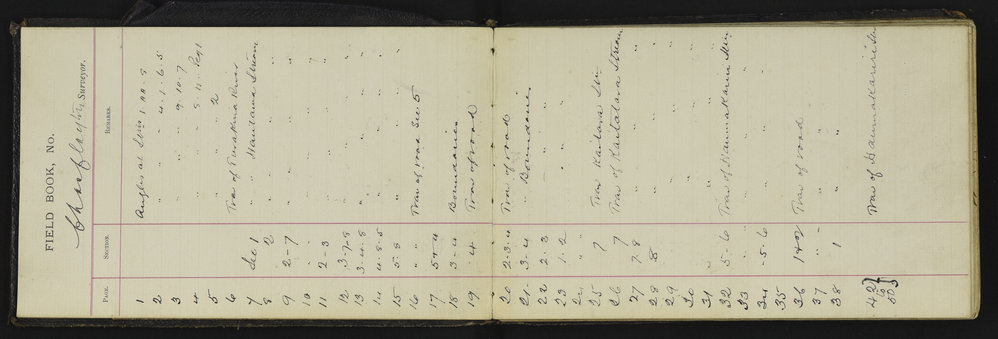 FIELD BOOK, No.
Surveyor.
PAGE. SECTION. REMARKS.
1 Angles at Stns 1
2 " " " 4·1·6·5
3 " " " 9·10·7
4 " " " 8·11·Peg 1
5 " " " 2
6 Trav of Turakina River
7 Sec 1 " " Hautama Stream
8 2 " " "
9 2-7 " " "
10 " " " "
11 2-3 " " "
12 3-7-8 " " "
13 3-4-8 " " "
14 4·8·5 " " "
15 5·8 " " "
16 " " Trav of road Sec 5
17 5+4 "
18 3-4 Boundaries
19 4 Trav of road
20 2·3·4 Trav of road
21 3-4 " Boundaries
22 2-3 " "
23 1-2 " "
24
25 7 Trav Str
26 7 Trav of Stream
27 7-8 " " "
28 8 " "
29 "
30 "
31 "
32 5-6 Trav of
33 " " "
34 5-6 " "
35
36 1+2 Trav of road
37 " " " "
38 1 " "
42 to 503 Trav of